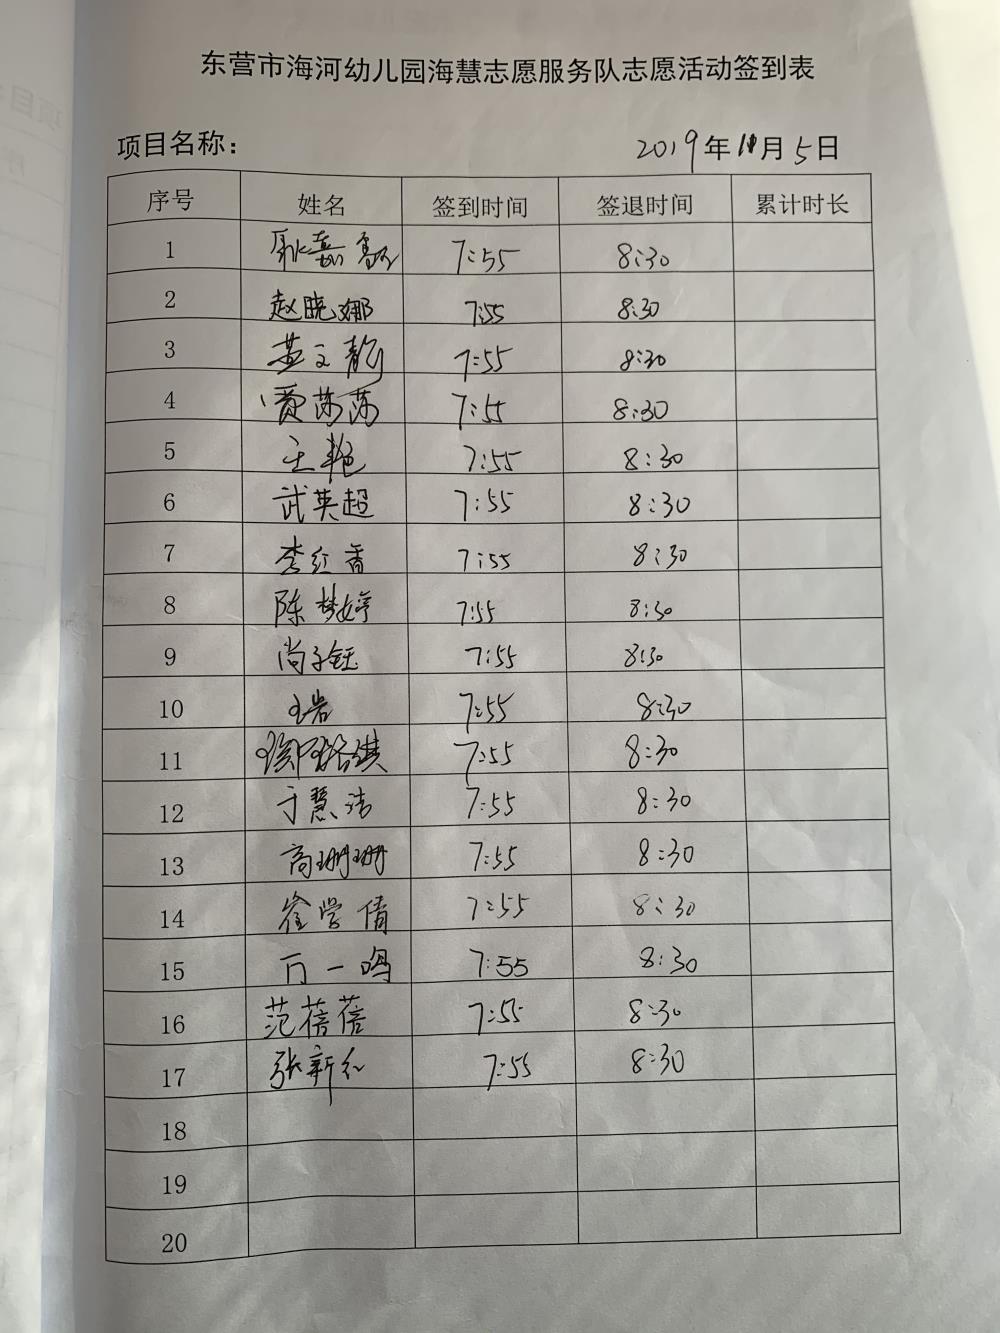 东营市海河幼儿园海慧志愿服务队志愿活动签到表
项目名称： 2019年11月5日
序号 姓名 签到时间 签退时间 累计时长
1 7:55 8:30
2 赵晓娜 7:55 8:30
3 7:55 8:30
4 贾莎莎 7:55 8:30
5 王艳 7:55 8:30
6 武英超 7:55 8:30
7 李红香 7:55 8:30
8 陈梦婷 7:55 8:30
9 尚子钰 7:55 8:30
10 王岩 7:55 8:30
11 7:55 8:30
12 于慧洁 7:55 8:30
13 高珊珊 7:55 8:30
14 崔学倩 7:55 8:30
15 万一鸣 7:55 8:30
16 范蓓蓓 7:55 8:30
17 张新红 7:55 8:30
18
19
20